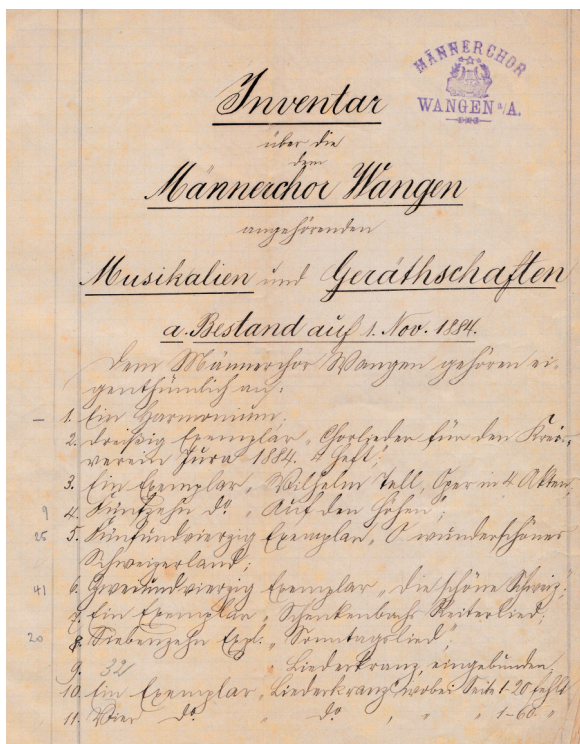 MÄNNERCHOR
WANGEN a/A.
Inventar
über die
dem
Männerchor Wangen
angehörenden
Musikalien und Geräthschaften
a. Bestand auf 1. Nov. 1884.
Dem Männerchor Wangen gehören ei-
genthümlich an:
– 1. Ein Harmonium;
2. Dreißig Exemplar „Chorlieder für den Kreis-
verein Jura 1884. Heft";
3. Ein Exemplar „Wilhelm Tell, Oper in 4 Akten;
9 4. Fünfzehn do. „Auf den Höhen";
25 5. Fünfundvierzig Exemplar „O wunderschönes
Schweizerland;
41 6. Zweiundvierzig Exemplar „Die schöne Schweiz;
7. Ein Exemplar „Schenkenbachs Reiterlied;
20 8. Siebenzehn Expl. „Sonntagslied";
9. 32 „Liederkranz, eingebunden;
10. Ein Exemplar „Liederkranz" wobei Seite 1-20 fehlt
11. Vier do. „ do. „ „ 1-60 „